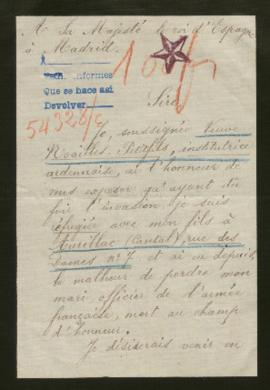 A Sa Majesté le roi d'Espagne
à Madrid.
Informes
Que se hace así
Devolver
Sire
54328/c
Je, soussignée Veuve
institutrice
ardennaise, ai l'honneur de
vous exposer qu'ayant dû
fuir l'invasion, je suis
réfugiée avec mon fils à
Aurillac (Cantal), rue des
Dames nº 7 et ai eu depuis,
le malheur de perdre mon
mari officier de l'armée
française, mort au champ
d'honneur.
Je désirerais venir en